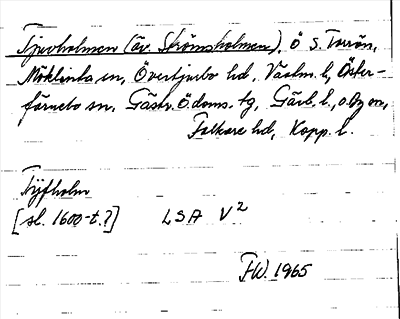 Tjuvholmen (äv. Strömsholmen), ö S. Torrön,
Möklinta sn, Övertjurbo hd, Vastm. l., Öster-
färnebo sn, Gästr. ö. doms. tg, Gävleb. l., o. By sn,
Folkare hd, Kopp. l.
Tÿfholm
[sl. 1600-t.?] LSA V²
FW. 1965